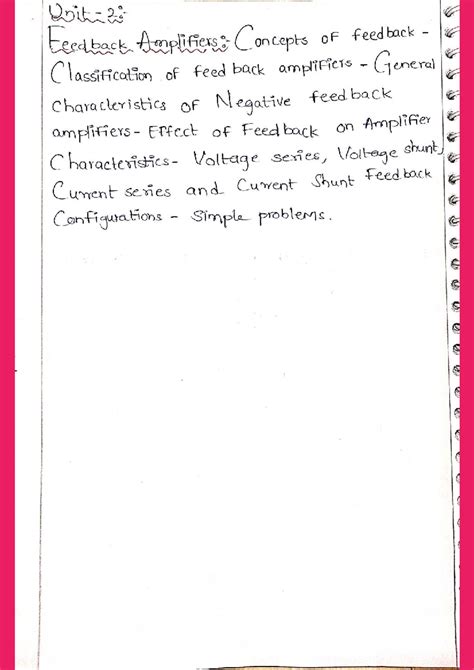 Unit-2:
Feedback Amplifiers: Concepts of feedback -
Classification of feedback amplifiers - General
characteristics of Negative feedback
amplifiers - Effect of Feedback on Amplifier
Characteristics - Voltage series, Voltage shunt,
Current series and Current Shunt Feedback
Configurations - Simple problems.